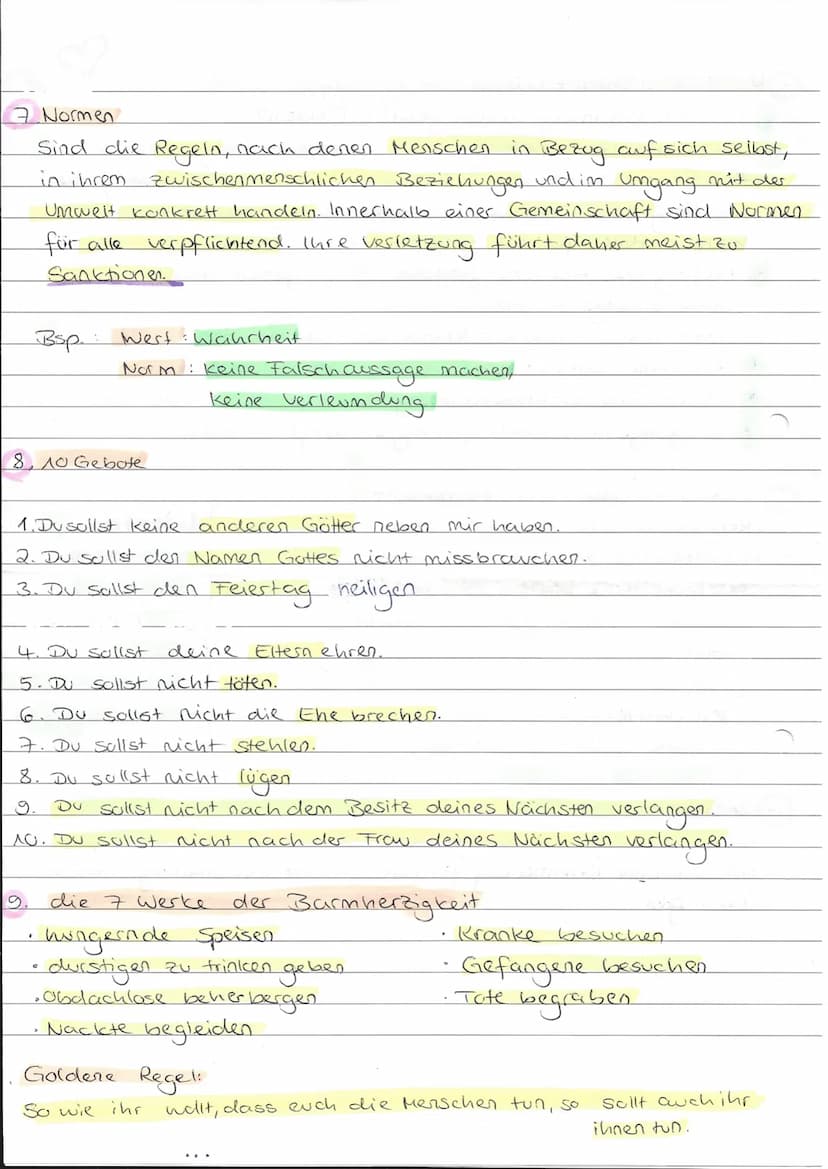 7 Normen
Sind die Regeln, nach denen Menschen in Bezug auf sich selbst,
in ihrem zwischenmenschlichen Beziehungen und im Umgang mit der
Umwelt konkrett handeln. Innerhalb einer Gemeinschaft sind Normen
für alle verpflichtend. Ihre verletzung führt daher meist zu
Sanktionen.
Bsp.: Wert: Wahrheit
Norm: keine Falschaussage machen,
keine verleumdung
8, 10 Gebote
1. Du sollst keine anderen Götter neben mir haben.
2. Du sollst den Namen Gottes nicht missbrauchen.
3. Du sollst den Feiertag heiligen
4. Du sollst deine Eltern ehren.
5. Du sollst nicht töten.
6. Du sollst nicht die Ehe brechen.
7. Du sollst nicht stehlen.
8. Du sollst nicht lügen
9. Du sollst nicht nach dem Besitz deines Nächsten verlangen.
10. Du sollst nicht nach der Frau deines Nächsten verlangen.
9. die 7 Werke der Barmherzigkeit
· hungernde Speisen
· durstigen zu trinken geben
· Obdachlose beherbergen
· Nackte begleiden
· Kranke besuchen
· Gefangene besuchen
· Tote begraben
. Goldene Regel:
So wie ihr wollt, dass euch die Menschen tun, so sollt auch ihr
ihnen tun.
...